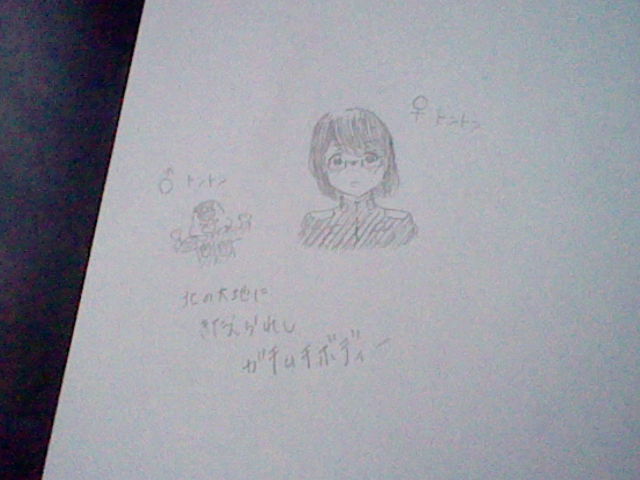 ♀ トントン
♂ トントン
北の大地に
きたえられし
ガチムチボディー